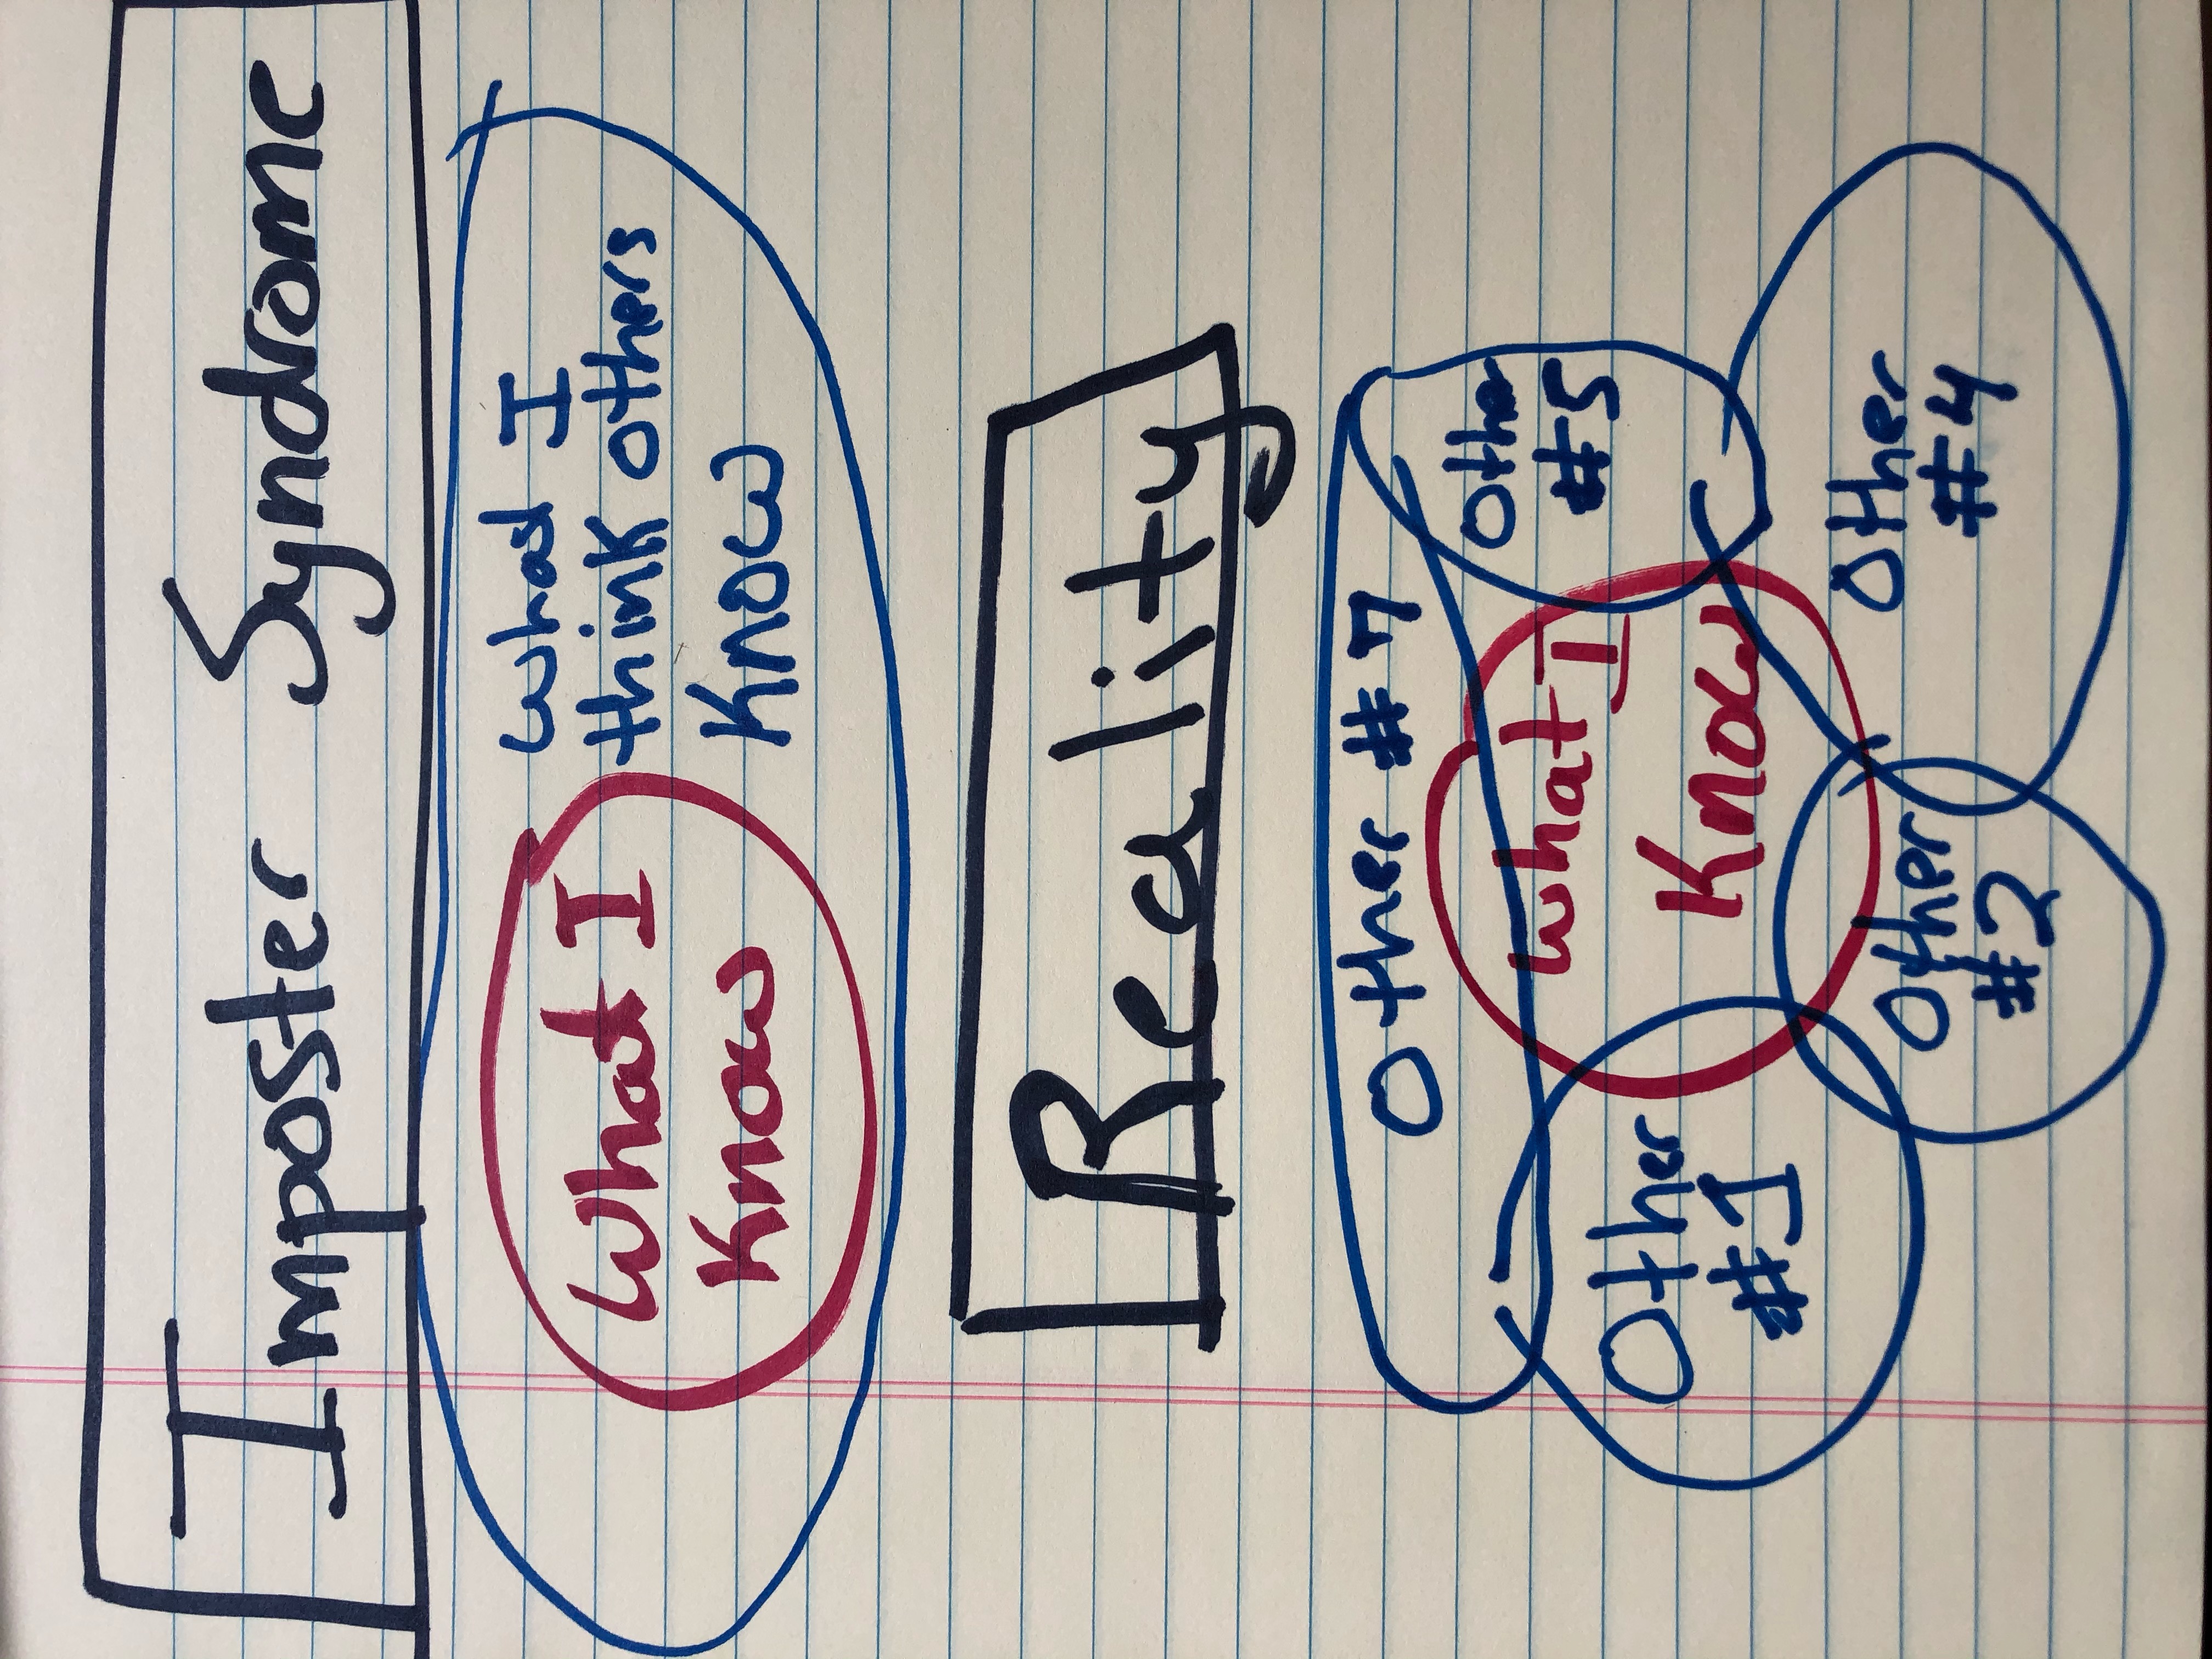 Imposter Syndrome
What I
Know
what I
think others
Know
Reality
Other #7
Other
#5
what I
Know
Other
#1
Other
#2
Other
#4